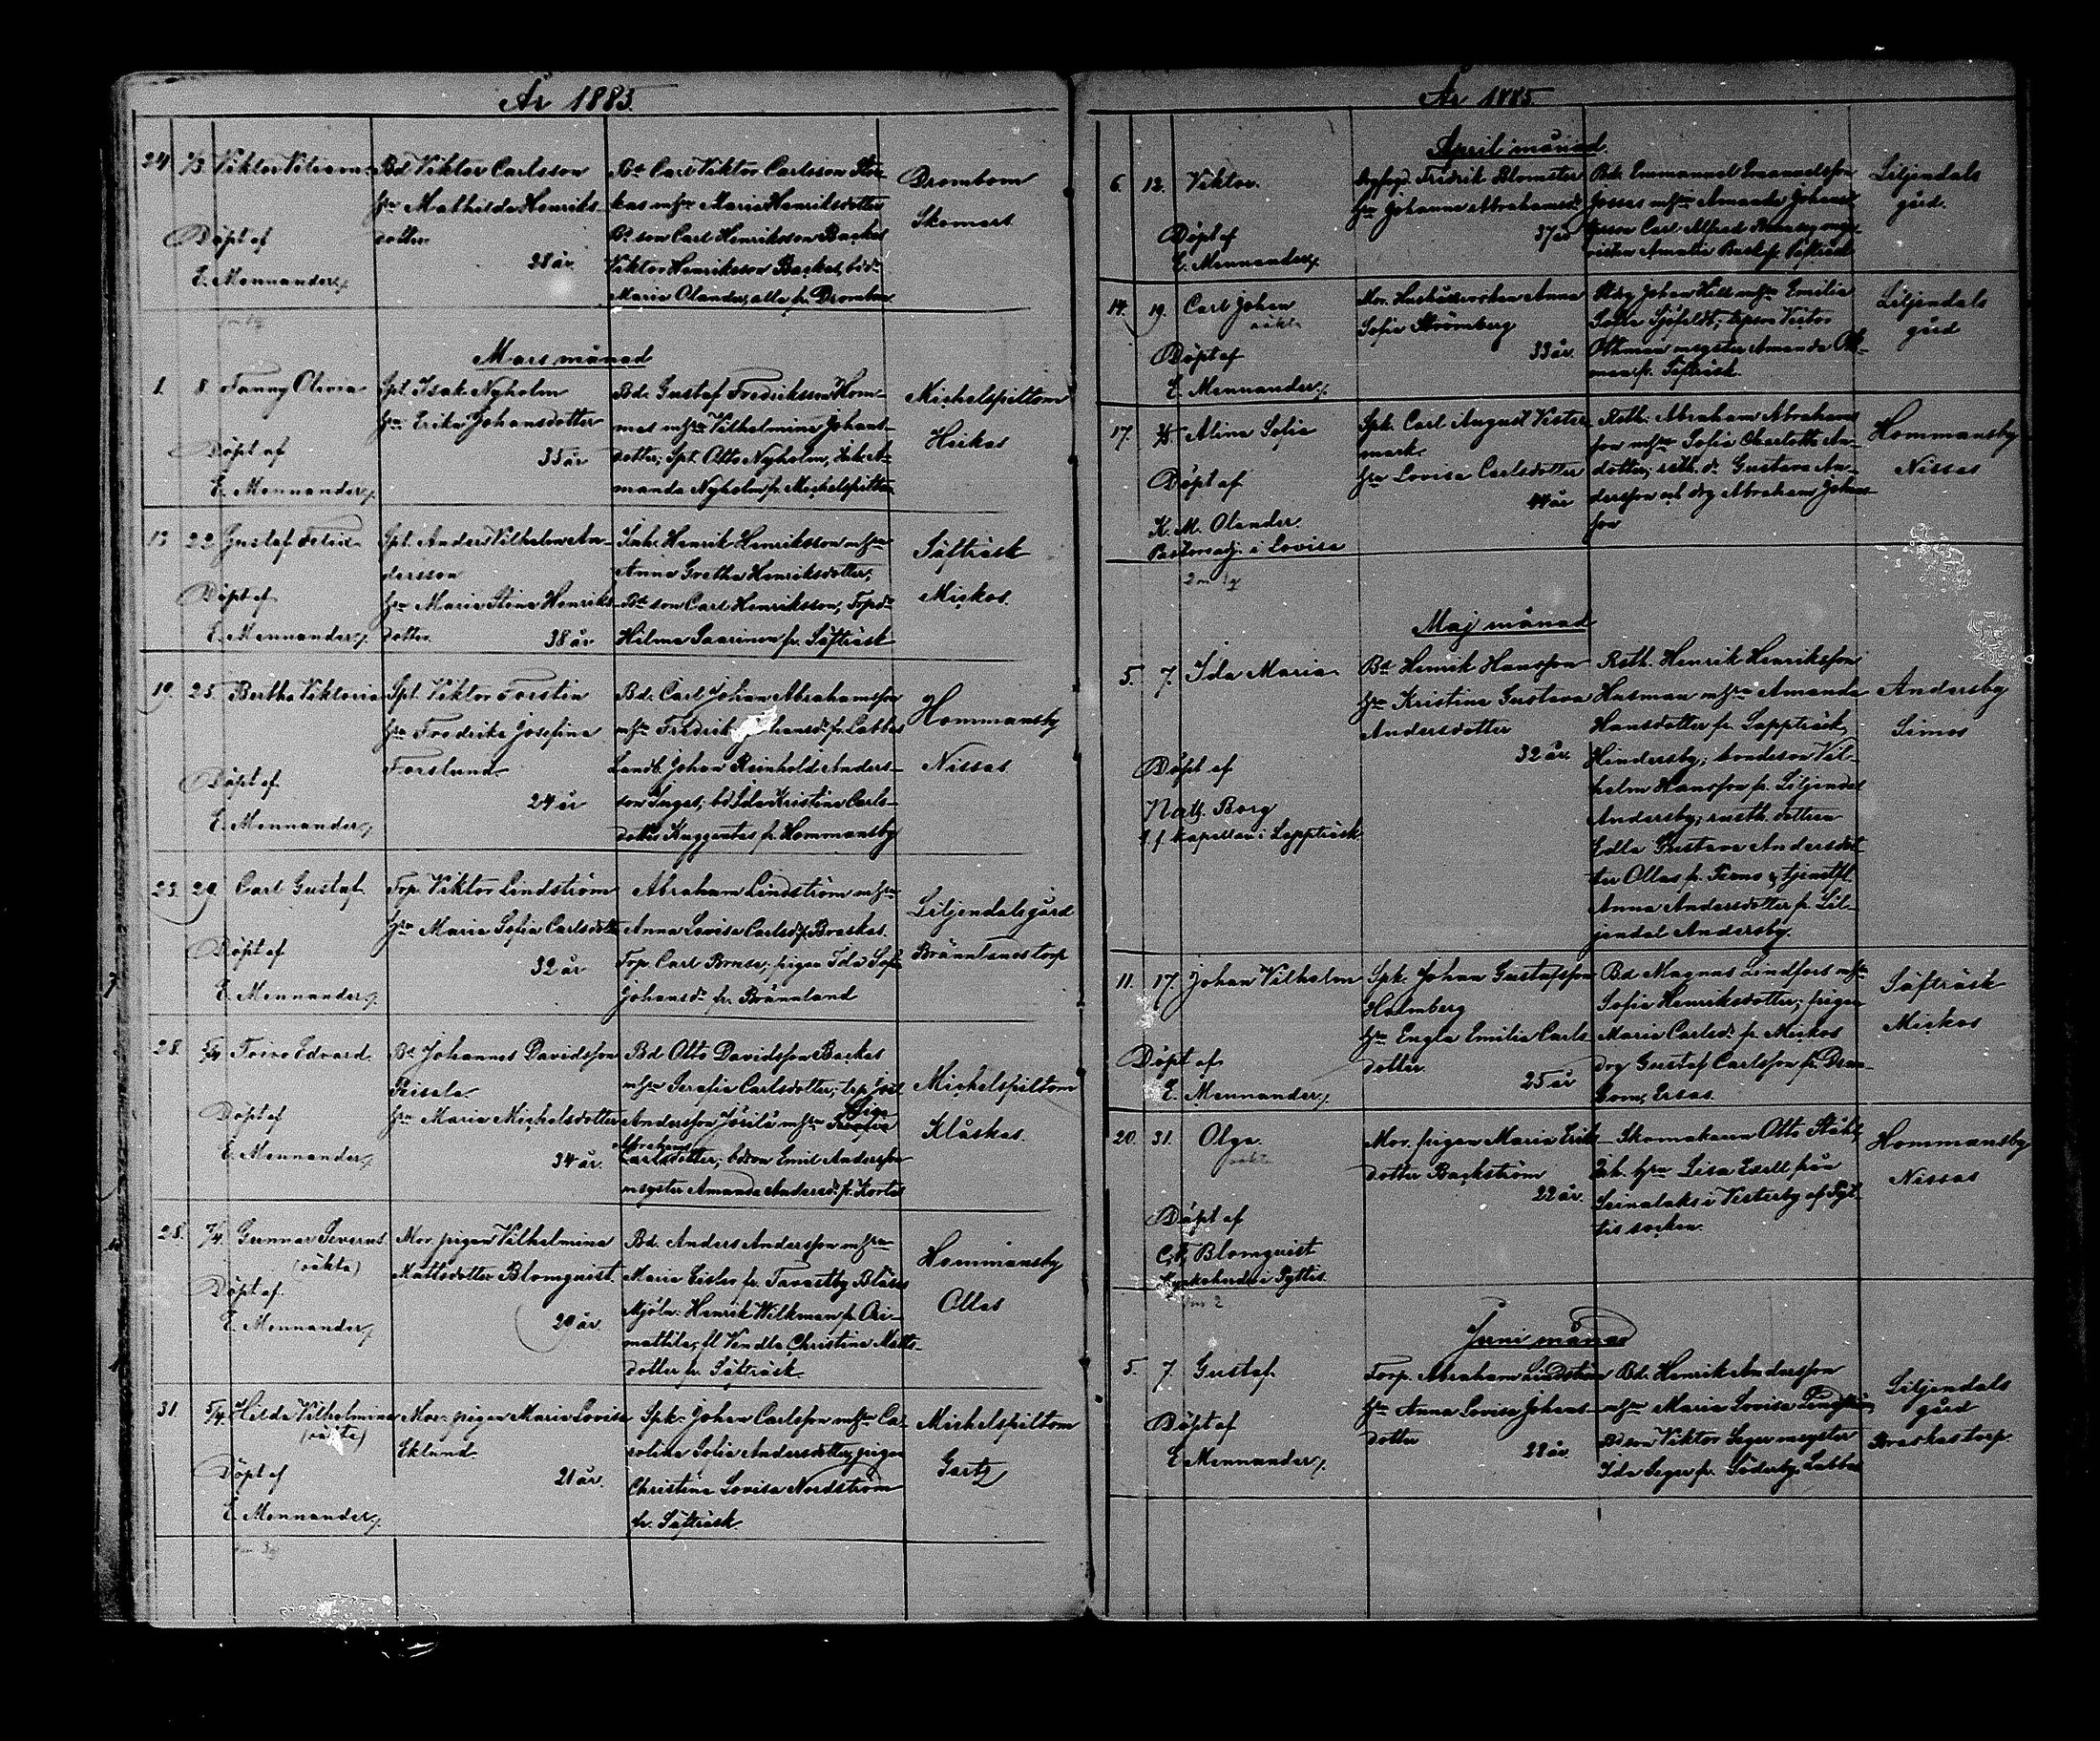 År 1885.
24 1/3 Viktor Viliam
Döpt af
E. Mennander
Bd Viktor Carlsson
hru Mathilda Henriks-
dotter
28 år
Bd Carl Viktor Carlsson Skor-
kas mhru Maria Henriksdotter
Bd son Carl Henriksson Backas
Viktor Henriksson Backas, bdr
Maria Olander, alla fr. Drombom
Drombom
Skomars
Mars månad
1. 8. Fanny Olivia
Döpt af
E. Mennander
Spl. Isak Nyholm
hru Erika Johansdotter
35 år
Bd. Gustaf Fredriksson Hom-
mas mhru Vilhelmina Johans-
dotter; Spl. Otto Nyholm, Inh. A-
manda Nyholm fr. Michelspiltom
Michelspiltom
Heikas
13 22 Gustaf Felix
Döpt af
E. Mennander
Spl. Anders Vilhelm An-
dersson
hru Maria Stina Henriks-
dotter 38 år
Inh. Henrik Henriksson mhru
Anna Gretha Henriksdotter;
Bd son Carl Henriksson, Torpdr
Hilma Saarinen fr. Säfträsk
Säfträsk
Mickos.
19. 25. Bertha Viktoria
Döpt af
E. Mennander
Spl. Viktor Forstin
hru Fredrika Josefina
Forslund
24 år
Bd. Carl Johan Abrahamsson
mhru Fredrik Johansdr fr. Labbas
Landb. Johan Reinhold Anders-
son Inges, bd Ida Kristina Carls-
dotter Kuggentas fr. Hommansby
Hommansby
Nissas.
23. 29. Carl Gustaf
Döpt af
E. Mennander
Torp. Viktor Lindström
hru Maria Sofia Carlsdotter
32 år
Abraham Lindström mhru
Anna Lovisa Carlsdr, Braskas.
Torp. Carl Brase; pigan Ida Sofia
Johansdr fr. Brännland
Liljendalsgård
Brännlandstorp
28. 5/4 Toivo Edvard.
Döpt af
E. Mennander
Bd Johannes Davidsson
Peisala
hru Maria Michelsdotter
34 år.
Bd Otto Davidsson Backas
mhru Serafia Carlsdotter; trp. Joel
Andersson Jörilä mhru
Abrahams
Carlsdotter; bdson Emil Andersson
msyster Amanda Andersdr fr. Kortas
Michelspiltom
Klåskas.
28. 7/4 Gunnar Severus
(oäkta)
Döpt af
E. Mennander
Mor. pigan Vilhelmina
Mattsdotter Blomquist.
20 år.
Bd. Anders Andersson mhru
Maria Eisler fr. Tavastby Blåses
Mjöln. Henrik Wilkman fr. Ori-
mattila; fl Vendla Christina Matts-
dotter fr. Säfträsk.
Hommansby
Ollas
31. 5/4 Hilda Vilhelmina
(oäkta)
Döpt af
E. Mennander
Mor: pigan Maria Lovisa
Eklund.
21 år.
Spk. Johan Carlsson mhru Ca-
rolina Sofia Andersdotter, pigan
Christina Lovisa Nordström
fr. Säfträsk
Michelspiltom
Gartz
År 1885.
April månad.
6. 12. Viktor.
Döpt af
E. Mennander
Fredrik Blomster
hru Johanna Abrahamsdr
37 år
Bd. Emmanuel Emanuelsson
Jossas mhru Amanda Johansdr
Carl Alfred
Amalia fr. Säfträsk
Liljendals
gård.
14. 19. Carl Johan
oäkta
Döpt af
E. Mennander
Mor. Hushållerskan Anna
Sofia Strömberg
33 år.
Johan Hill mhru Emilia
Sofia Sjöfeldt; Victor
Öhman msyster Amanda Öh-
man fr. Säfträsk.
Liljendals
gård
17. Alina Sofia
Döpt af
K. M. Olander.
Pastorsadj. i Lovisa
Spk. Carl August Vester
mark.
hru Lovisa Carlsdotter
44 år
Rsth. Abraham Abrahams
son mhru Sofia Charlotta An-
dotter; rsth. dr Gustava An-
dersson och drg Abraham Johans
son
Hommansby
Nissas
Maj månad
5. 7. Ida Maria
Döpt af
Nath. Borg
t. f. kapellan i Lappträsk
Bd Henrik Hansson
hru Kristina Gustava
Andersdotter
32 år.
Rsth. Henrik Henriksson
Husman mhru Amanda
Hansdotter fr. Lappträsk
Hindersby; bondeson Vil-
helm Hansson fr. Liljendal
Andersby; rusth. dottren
Edla Gustava Andersdot
ter Ollas fr. Perno & tjenstfl.
Anna Andersdotter fr. Lil-
jendal Andersby.
Andersby
Simos
11. 17. Johan Vilhelm
Döpt af
E. Mennander
Spk. Johan Gustafsson
Holmberg
hru Engla Emilia Carls
dotter
25 år
Bd Magnus Lindfors mhru
Sofia Henriksdotter; pigan
Maria Carlsdr fr. Mickos
drg Gustaf Carlsson fr. Drom-
bom, Ersas.
Säfträsk
Mickos
20. 31. Olga.
oäkta
Döpt af
C. F. Blomquist
Kyrkoherde i Pyttis.
Mor. pigan Maria Erik
dotter Backström
22 år.
Skomakaren Otto Ståhl,
Inh. hru Lisa Exell från
Leinalaks i Vesterby af Pyt
tis socken.
Hommansby
Nissas
Juni månad
5. 7. Gustaf.
Döpt af
E. Mennander
Torp. Abraham Lindström
hru Anna Lovisa Johans-
dotter
28 år.
Bd. Henrik Andersson
mhru Maria Lovisa
Bdson Viktor Seger msyster
Ida Seger fr. Söderby, Labbas
Liljendals
gård
Braskastorp.